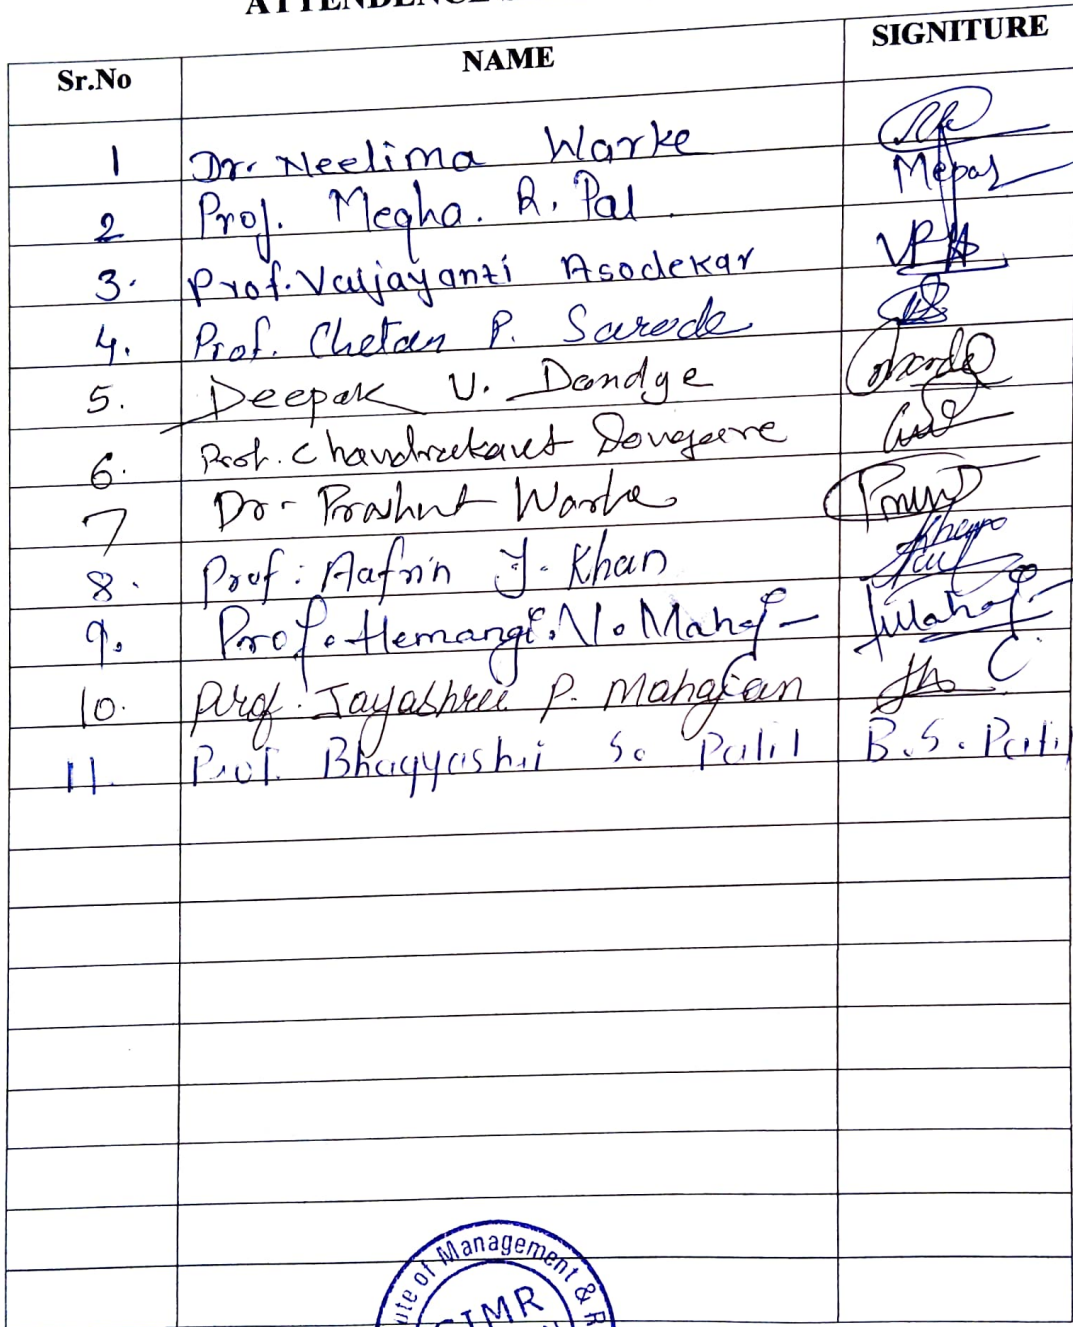 ATTENDENCE
Sr.No NAME SIGNITURE
1 Dr. Neelima Warke
2 Prof. Megha. R. Pal Mepal
3. Prof. Vaijayanti Asodekar VPA
4. Prof. Chetan P. Sarode
5. Deepak V. Dandge
6. Prof. Chandrakant Dongare
7 Dr. Prashant Warke
8. Prof: Aafrin J. Khan
9. Prof. Hemangi. N. Mahaj
10. Prof. Jayashree P. Mahajan
11. Prof. Bhagyashri S. Patil B.S. Patil
ute of Management & R
IMR